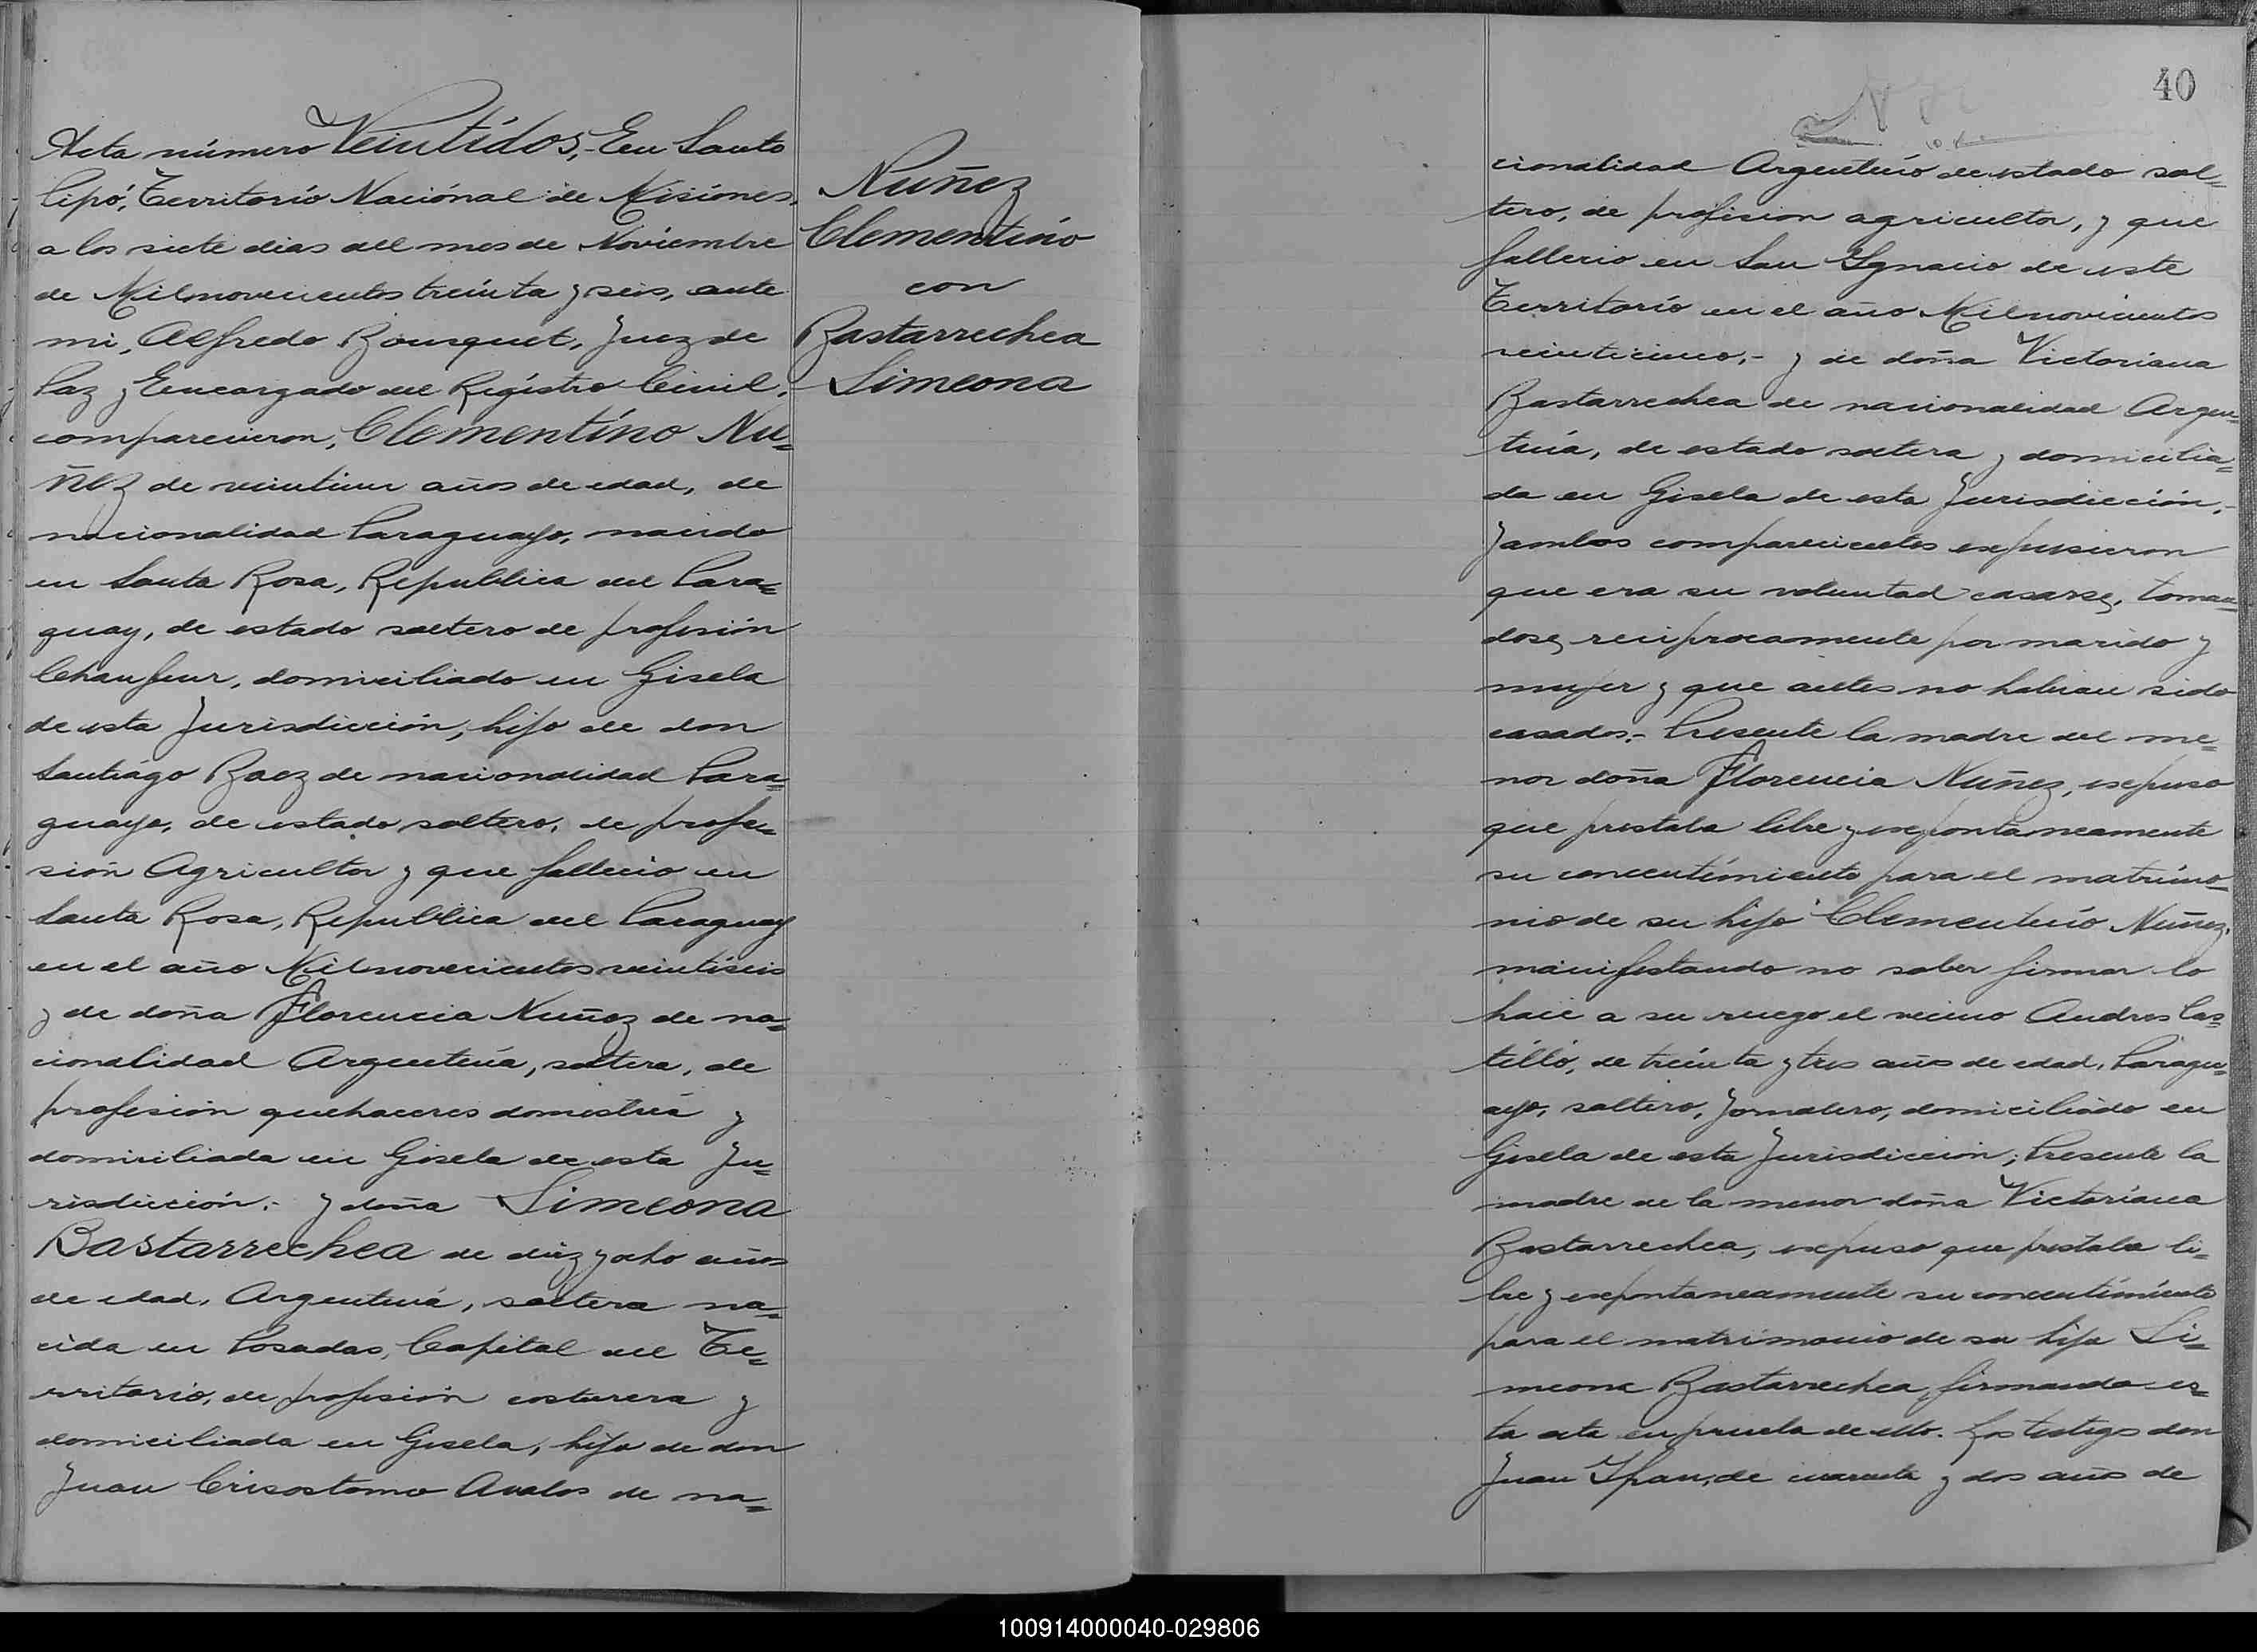 Acta número Veintidos,- En Santo
Pipó, Territorio Naciónal de Misiónes,
a los siete dias del mes de Noviembre
de Milnovecientos treinta y seis, ante
mi, Alfredo Bousquet, Juez de
Paz y Encargado del Registro Civil,
comparecieron, Clementino Nu=
ñez de veintiun años de edad, de
nacionalidad Paraguayo, nacido
en Santa Rosa, Republica del Para=
guay, de estado soltero de profesión
Chaufeur, domiciliado en Gisela
de esta Jurisdicción, hijo de don
Santiago Baez de nacionalidad Para=
guayo, de estado soltero, de profe=
sión Agricultor y que fallecio en
Santa Rosa, Republica del Paraguay
en el año Milnovecientos veintiseis
y de doña Florencia Nuñez de na=
cionalidad Argentina, soltera, de
profesión quehaceres domestica y
domiciliada en Gisela de esta Ju=
risdicción.- y doña Simeona
Bastarrechea de diez y ocho años
de edad, Argentina, soltera na=
cida en Posadas, Capital del Te=
rritorio, de profesión costurera y
domiciliada en Gisela, hija de don
Juan Crisostomo Avalos de na=
Nuñez
Clementino
con
Bastarrechea
Simeona
40
cionalidad Argentino de estado sol=
tero, de profision agricultor, y que
fallecio en San Ygnacio de este
Territorio en el año Milnovecientos
veinticinco.- y de doña Victoriana
Bastarrechea de nacionalidad Argen=
tina, de estado soltera y domicilia=
da en Gisela de esta Jurisdicción.-
Y ambos comparecientes expusieron
que era su voluntad casarse, toman=
dose reciprocamente por marido y
mujer y que antes no habian sido
casados.- Presente la madre del me=
nor doña Florencia Nuñez, expuso
que prestaba libre y expontaneamente
su concentimiento para el matrimo=
nio de su hijo Clementino Nuñez,
manifestando no saber firmar lo
hace a su ruego el vecino Andres Cas=
tillo, de treinta y tres años de edad, Paragu=
ayo, soltero, Jornalero, domiciliado en
Gisela de esta Jurisdiccion; Presente la
madre de la menor doña Victoriana
Bastarrechea, expuso que prestaba li=
bre y expontaneamente su concentimiento
para el matrimonio de su hija Si=
meona Bastarrechea, firmando es=
ta acta en prueba de ello. Los testigos don
Juan de cuarenta y dos años de
100914000040-029806